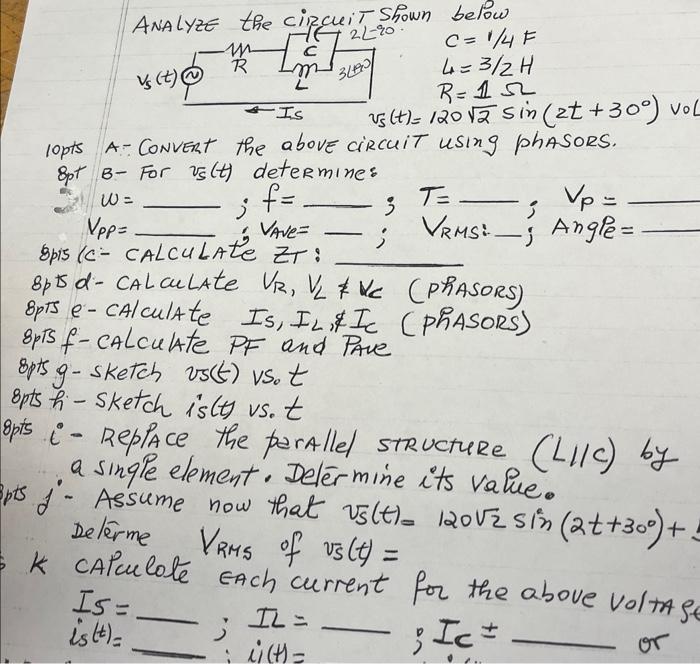 ANALYZE the circuit Shown below
2∠-90
C = 1/4 F
C
R
3∠90
L = 3/2 H
Vs(t)
L
R = 1 Ω
Is
vs(t) = 120√2 sin(2t+30°) VOL
10pts A- CONVERT the above circuit using phasors.
8pt B- For vs(t) determine:
ω = ____ ; f = ____ ; T = ____ ; Vp = ____
Vpp = ____ ; VAVE = __ ; VRMS: __ ; Angle = ____
8pts (c- CALCULATE ZT : ____
8pts d- CALCULATE VR, VL & VC (PHASORS)
8pts e- CAlculate IS, IL, & IC (PHASORS)
8pts f- CALCULATE PF and PAve
8pts g- sketch vs(t) vs. t
8pts h- Sketch is(t) vs. t
8pts i- Replace the parallel STRUCTURE (L11C) by
a single element. Determine its value.
pts j- Assume now that vs(t) = 120√2 sin(2t+30°)+
Determe VRMS of vs(t) =
K CAlculate EACH current for the above VoltAge
IS = ____ ; IL = ____ ; IC = ____ or
is(t) = ____ ; il(t) =